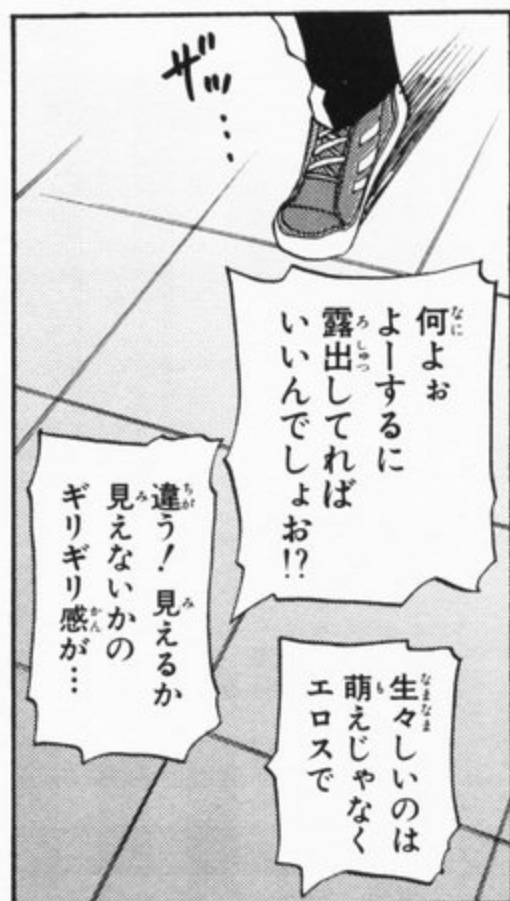 ザッ…
何よぉ
よーするに
露出してれば
いいんでしょお!?
違う！見えるか
見えないかの
ギリギリ感が…
生々しいのは
萌えじゃなく
エロスで